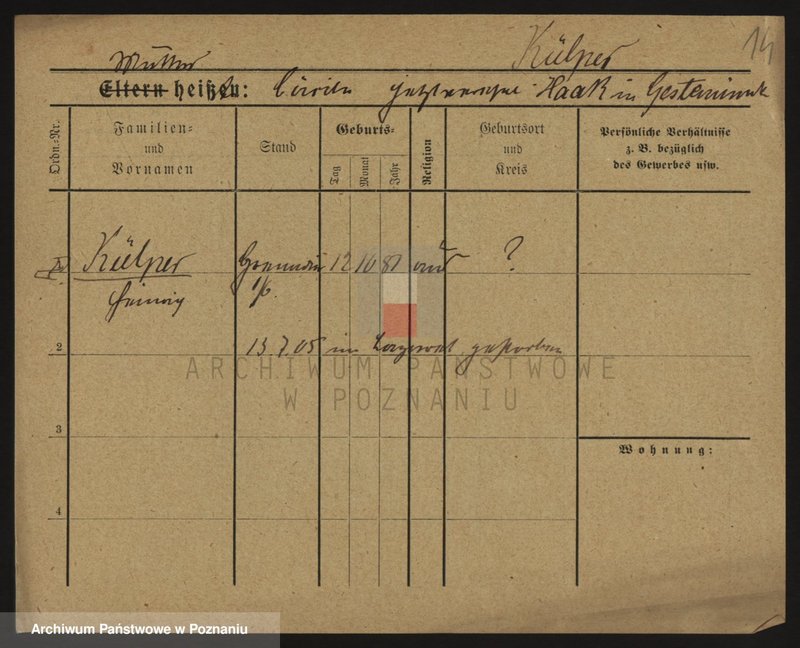 14
Mutter Külper
Eltern heißen: jetzt Haak in
Ordn.-Nr.
Familien-
und
Vornamen
Stand
Geburts-
Tag
Monat
Jahr
Religion
Geburtsort
und
Kreis
Persönliche Verhältnisse
z. B. bezüglich
des Gewerbes usw.
Külper 12 10 81 ?
1/6.
2 13.7.05 im Lazarett gestorben
ARCHIWUM PAŃSTWOWE
W POZNANIU
3
Wohnung:
4
Archiwum Państwowe w Poznaniu